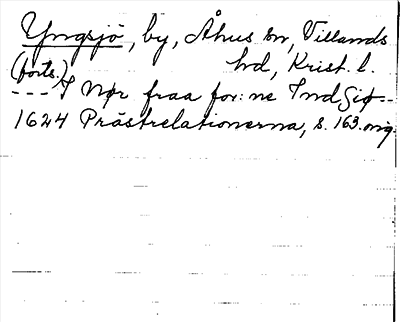 Yngsjö, by, Åhus sn, Villands
hd, Krist. l.
(forts.)
--- I Nør fraa for: ne IndSiø---
1624 Prästrelationerna, s. 163. orig.